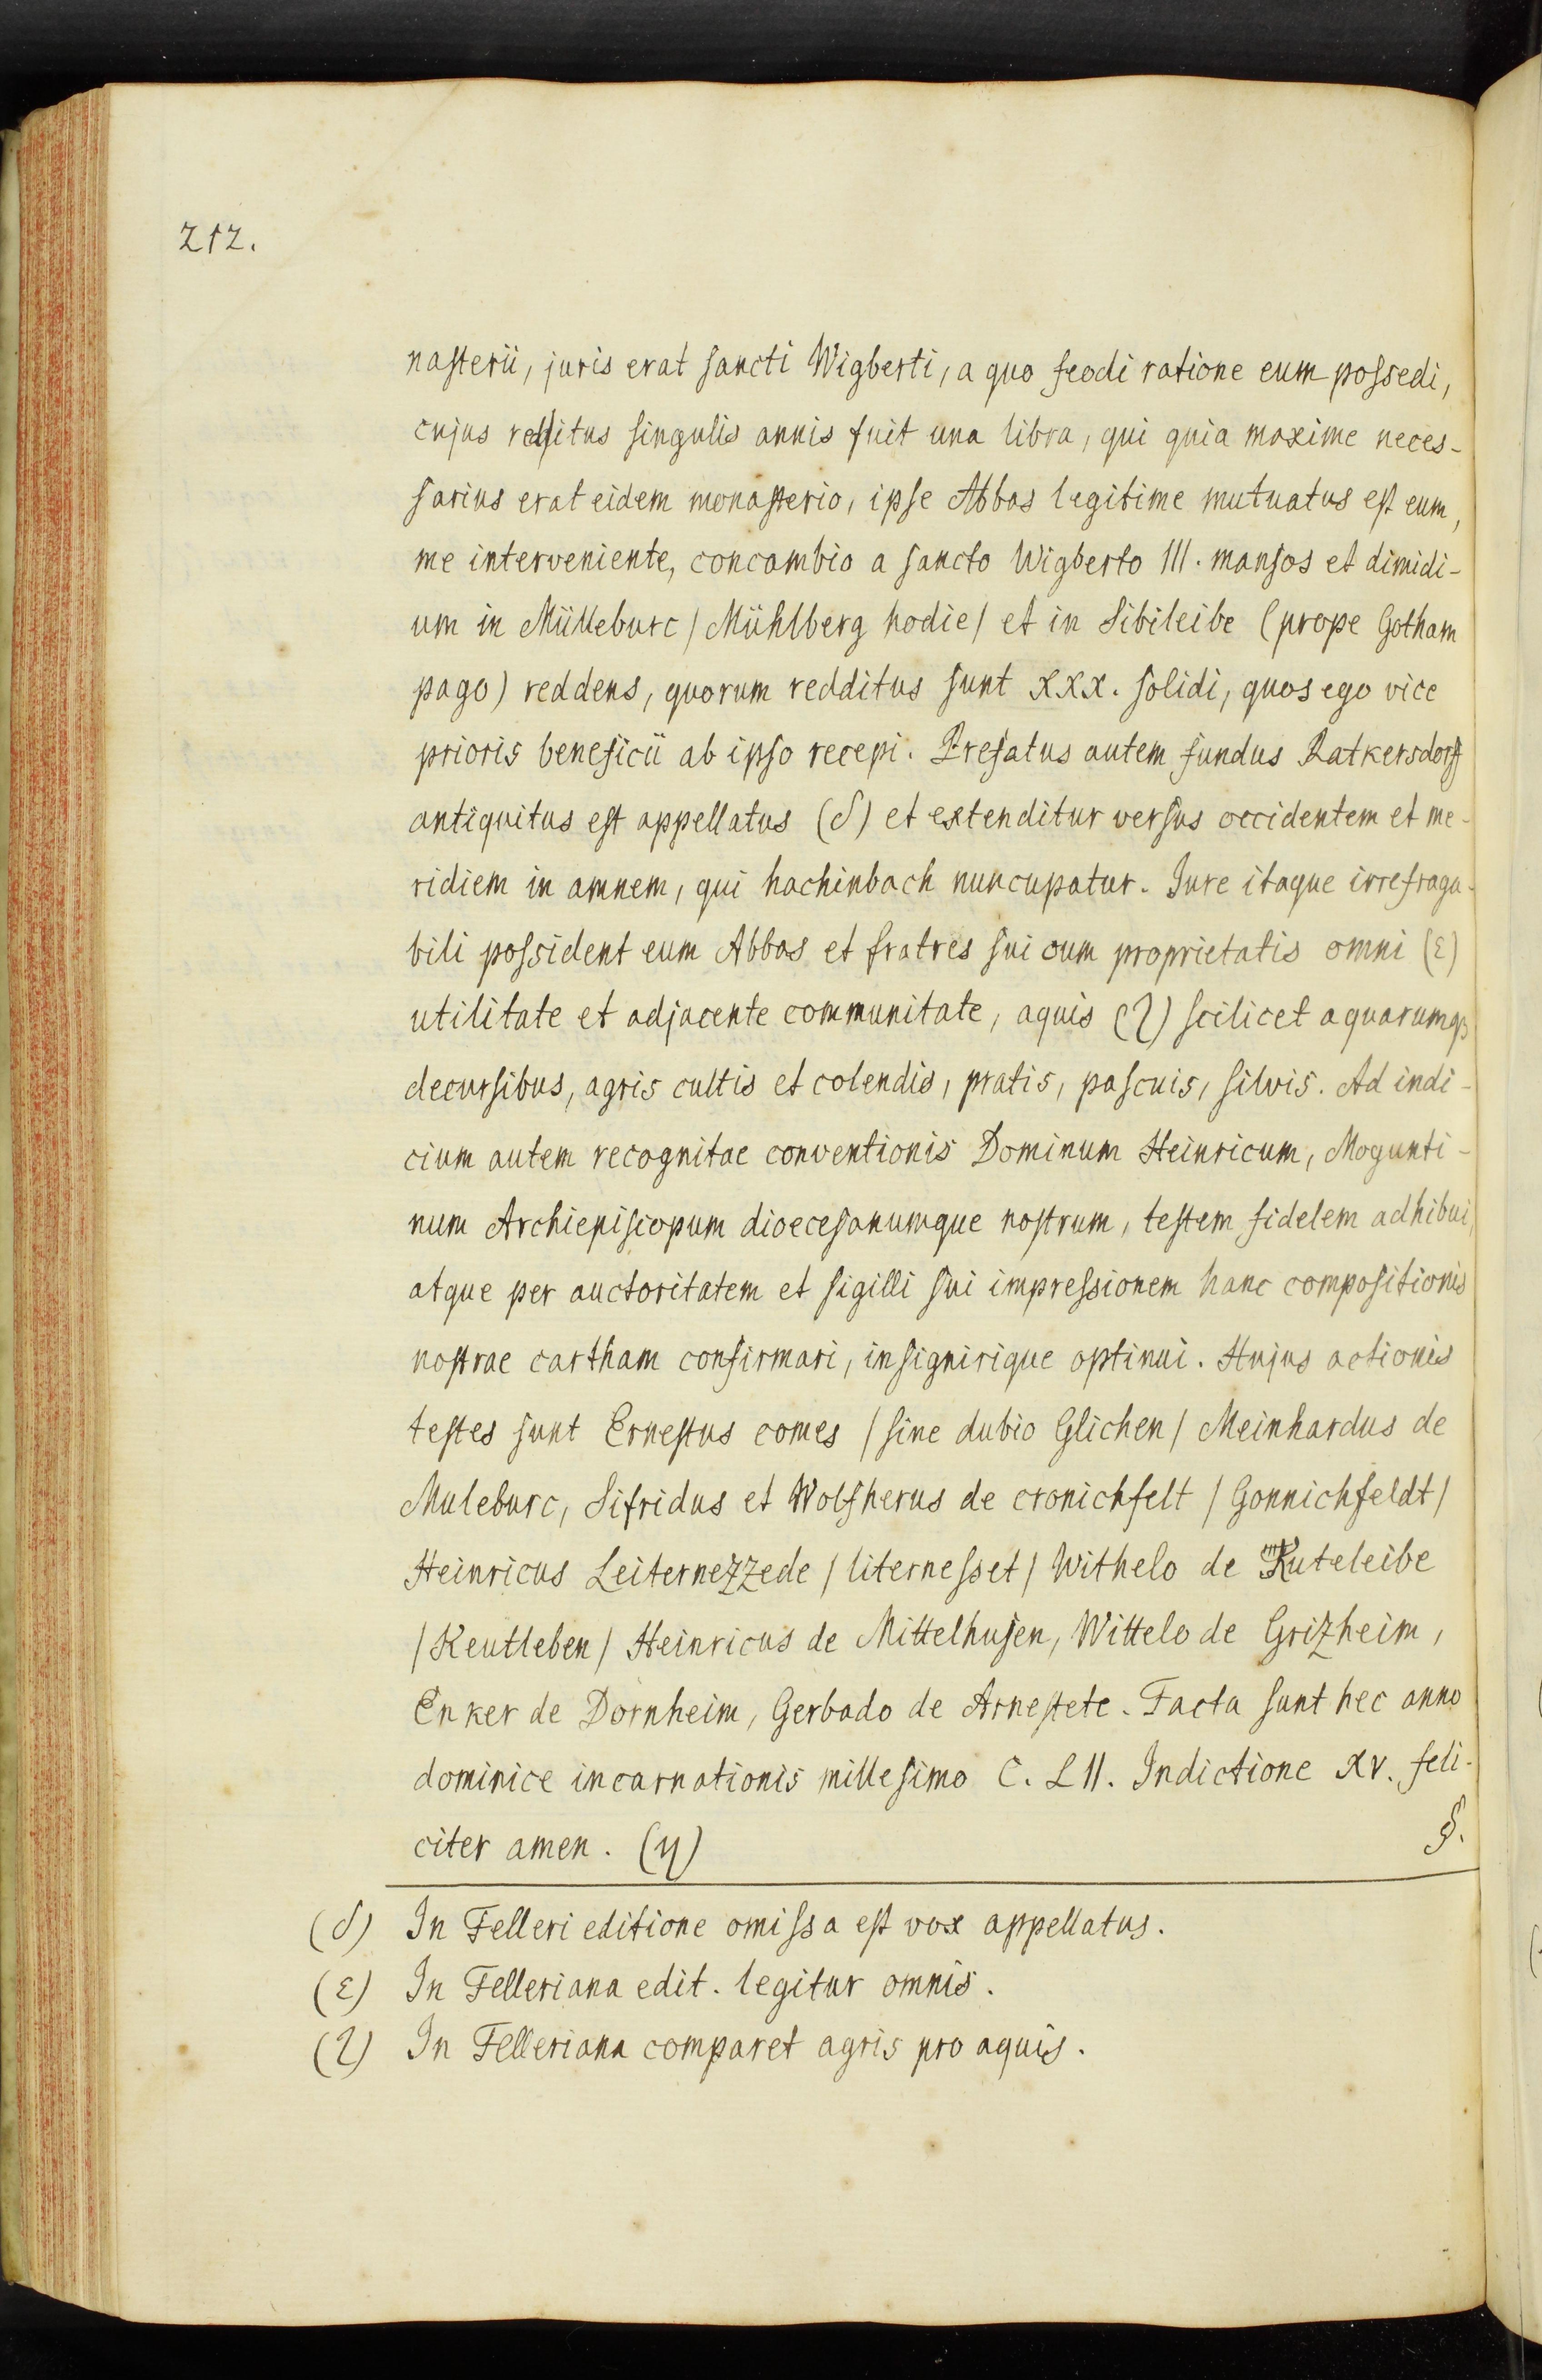 212.
nasterii, juris erat sancti Wigberti, a quo feodi ratione eum possedi,
cujus reditus singulis annis fuit una libra, qui quia maxime neces-
sarius erat eidem monasterio, ipse Abbas legitime mutuatus est eum,
me interveniente, concambio a sancto Wigberto III. mansos et dimidi-
um in Mülleburc / Mühlberg hodie / et in Sibileibe (prope Gotham
pago) reddens, quorum redditus sunt XXX. solidi, quos ego vice
prioris beneficii ab ipso recepi. Prefatus autem fundus Ratkersdorff
antiquitus est appellatus (δ) et extenditur versus occidentem et me-
ridiem in amnem, qui hachinbach nuncupatur. Jure itaque irrefraga-
bili possident eum Abbas et fratres sui cum proprietatis omni (ε)
utilitate et adjacente communitate, aquis (ζ) scilicet aquarumqȝ
decursibus, agris cultis et colendis, pratis, pascuis, silvis. Ad indi-
cium autem recognitae conventionis Dominum Heinricum, Mogunti-
num Archiepiscopum dioecesanumque nostrum, testem fidelem adhibui,
atque per auctoritatem et sigilli sui impressionem hanc compositionis
nostrae cartham confirmari, insignirique optinui. Hujus actionis
testes sunt Ernestus comes / sine dubio Glichen / Meinhardus de
Muleburc, Sifridus et Wolfherus de cronichfelt / Gonnichfeldt /
Heinricus Leiternezzede / liternesset / Withelo de Kuteleibe
/ Keutleben / Heinricus de Mittelhusen, Wittelo de Grizheim,
Enker de Dornheim, Gerbado de Arnestete. Facta sunt hec anno
dominice incarnationis millesimo C. LII. Indictione XV. feli-
citer amen. (η) §.
(δ) In Felleri editione omissa est vox appellatus.
(ε) In Felleriana edit. legitur omnis.
(ζ) In Felleriana comparet agris pro aquis.